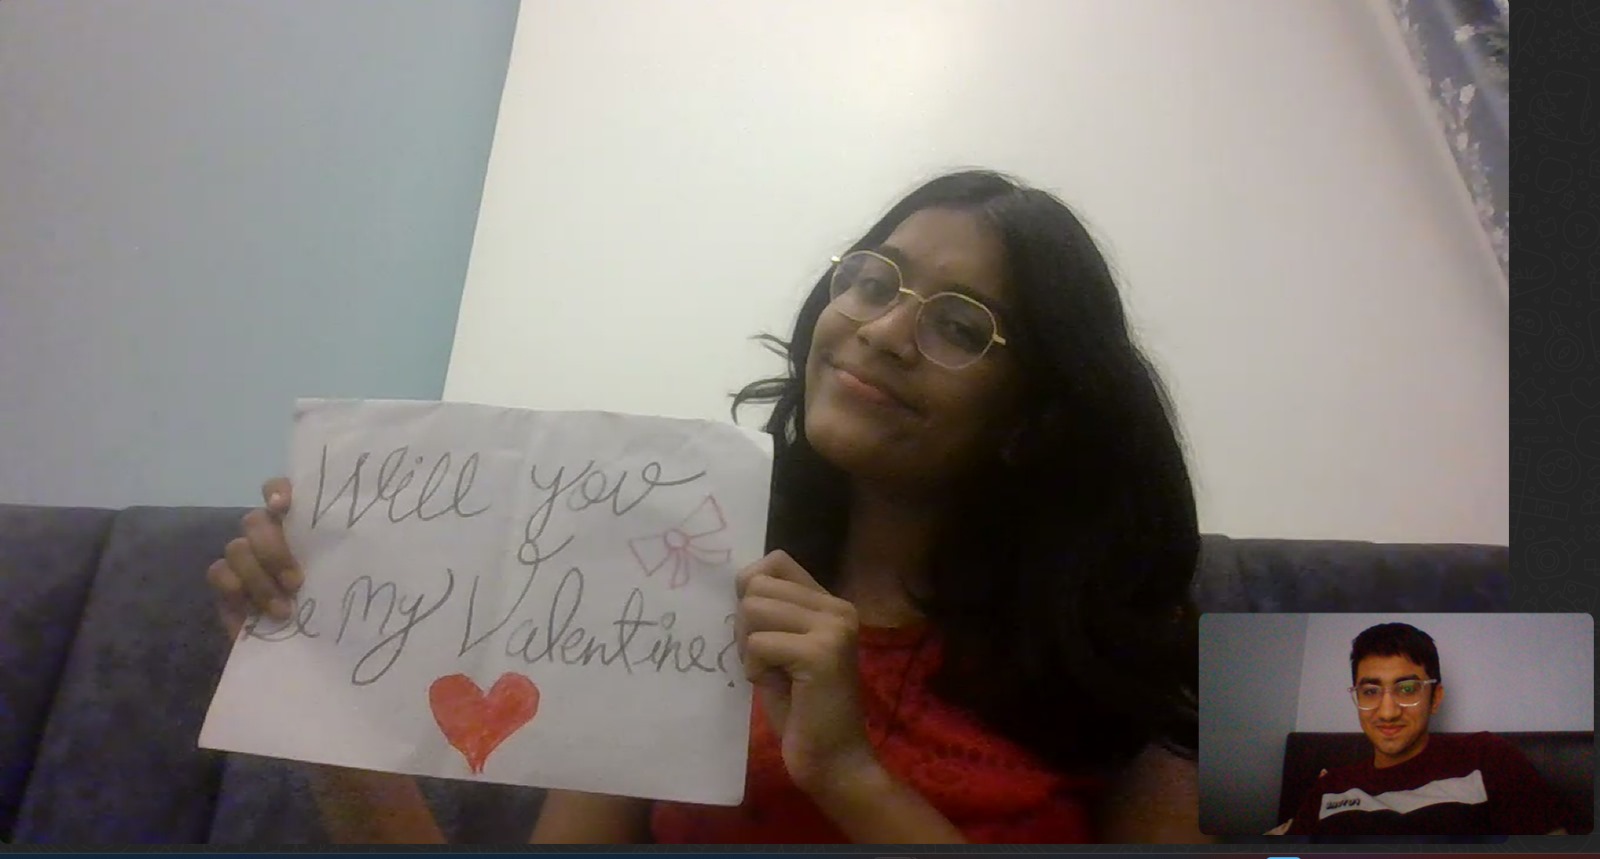 Will you
Be My Valentine?